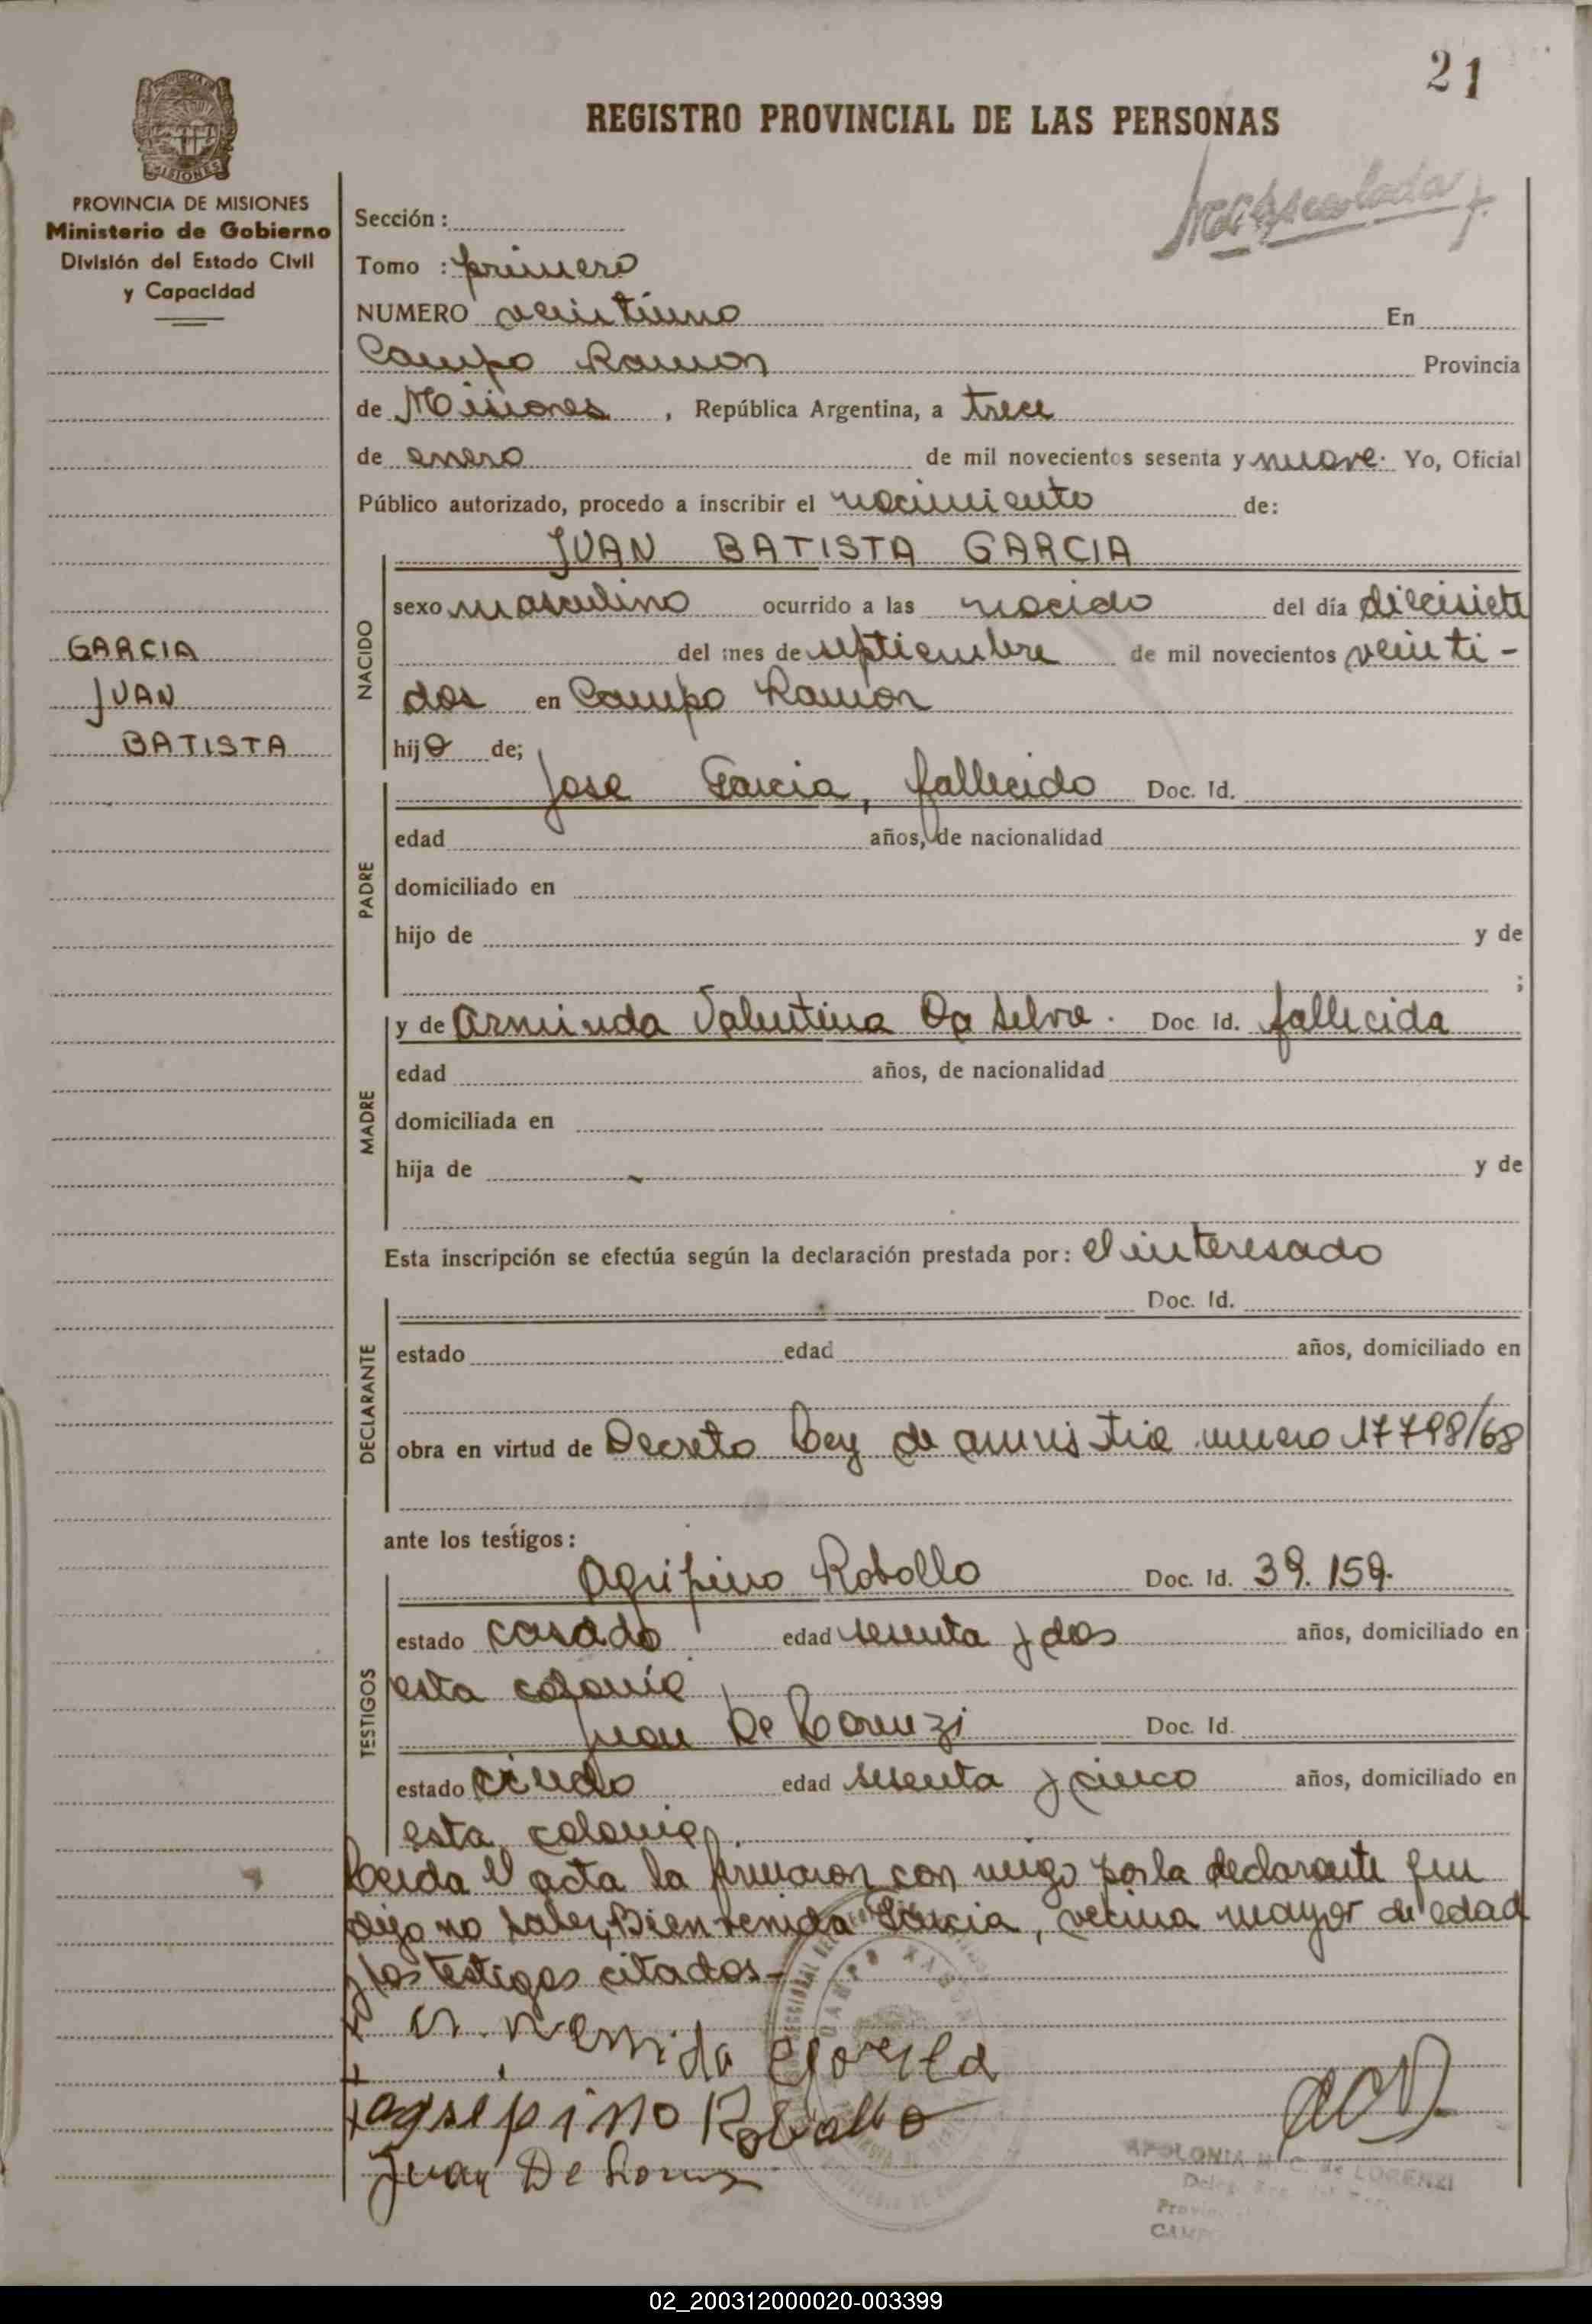 21
REGISTRO PROVINCIAL DE LAS PERSONAS
MISIONES
PROVINCIA DE MISIONES
Ministerio de Gobierno
División del Estado Civil
y Capacidad
Sección :
Tomo : primero
NUMERO veintiuno En
Campo Ramon Provincia
de Misiones , República Argentina, a trece
de enero de mil novecientos sesenta y nueve. Yo, Oficial
Público autorizado, procedo a inscribir el nacimiento de:
JUAN BATISTA GARCIA
NACIDO
sexo masculino ocurrido a las nacido del día diecisiete
del mes de septiembre de mil novecientos veinti-
dos en Campo Ramon
hijo de;
GARCIA
JUAN
BATISTA
PADRE
Jose Garcia, fallecido Doc. Id.
edad años, de nacionalidad
domiciliado en
hijo de y de
;
MADRE
y de Arminda Valentina Da Silva. Doc Id. fallecida
edad años, de nacionalidad
domiciliada en
hija de y de
Esta inscripción se efectúa según la declaración prestada por: el interesado
DECLARANTE
Doc. Id.
estado edad años, domiciliado en
obra en virtud de Decreto Ley de amnistia numero 17798/68
ante los testigos:
TESTIGOS
Agripino Robollo Doc. Id. 39.159.
estado casado edad sesenta y dos años, domiciliado en
esta colonia
Juan De Lorenzi Doc. Id.
estado viudo edad sesenta y cinco años, domiciliado en
esta colonia.
Leida el acta la firmaron con migo por la declarante quien
dijo no saber, Bienvenida Garcia, vecina mayor de edad
y los testigos citados-
agripino Roballo
Juan De Lorenzi
APOLONIA C. de LORENZI
02_200312000020-003399